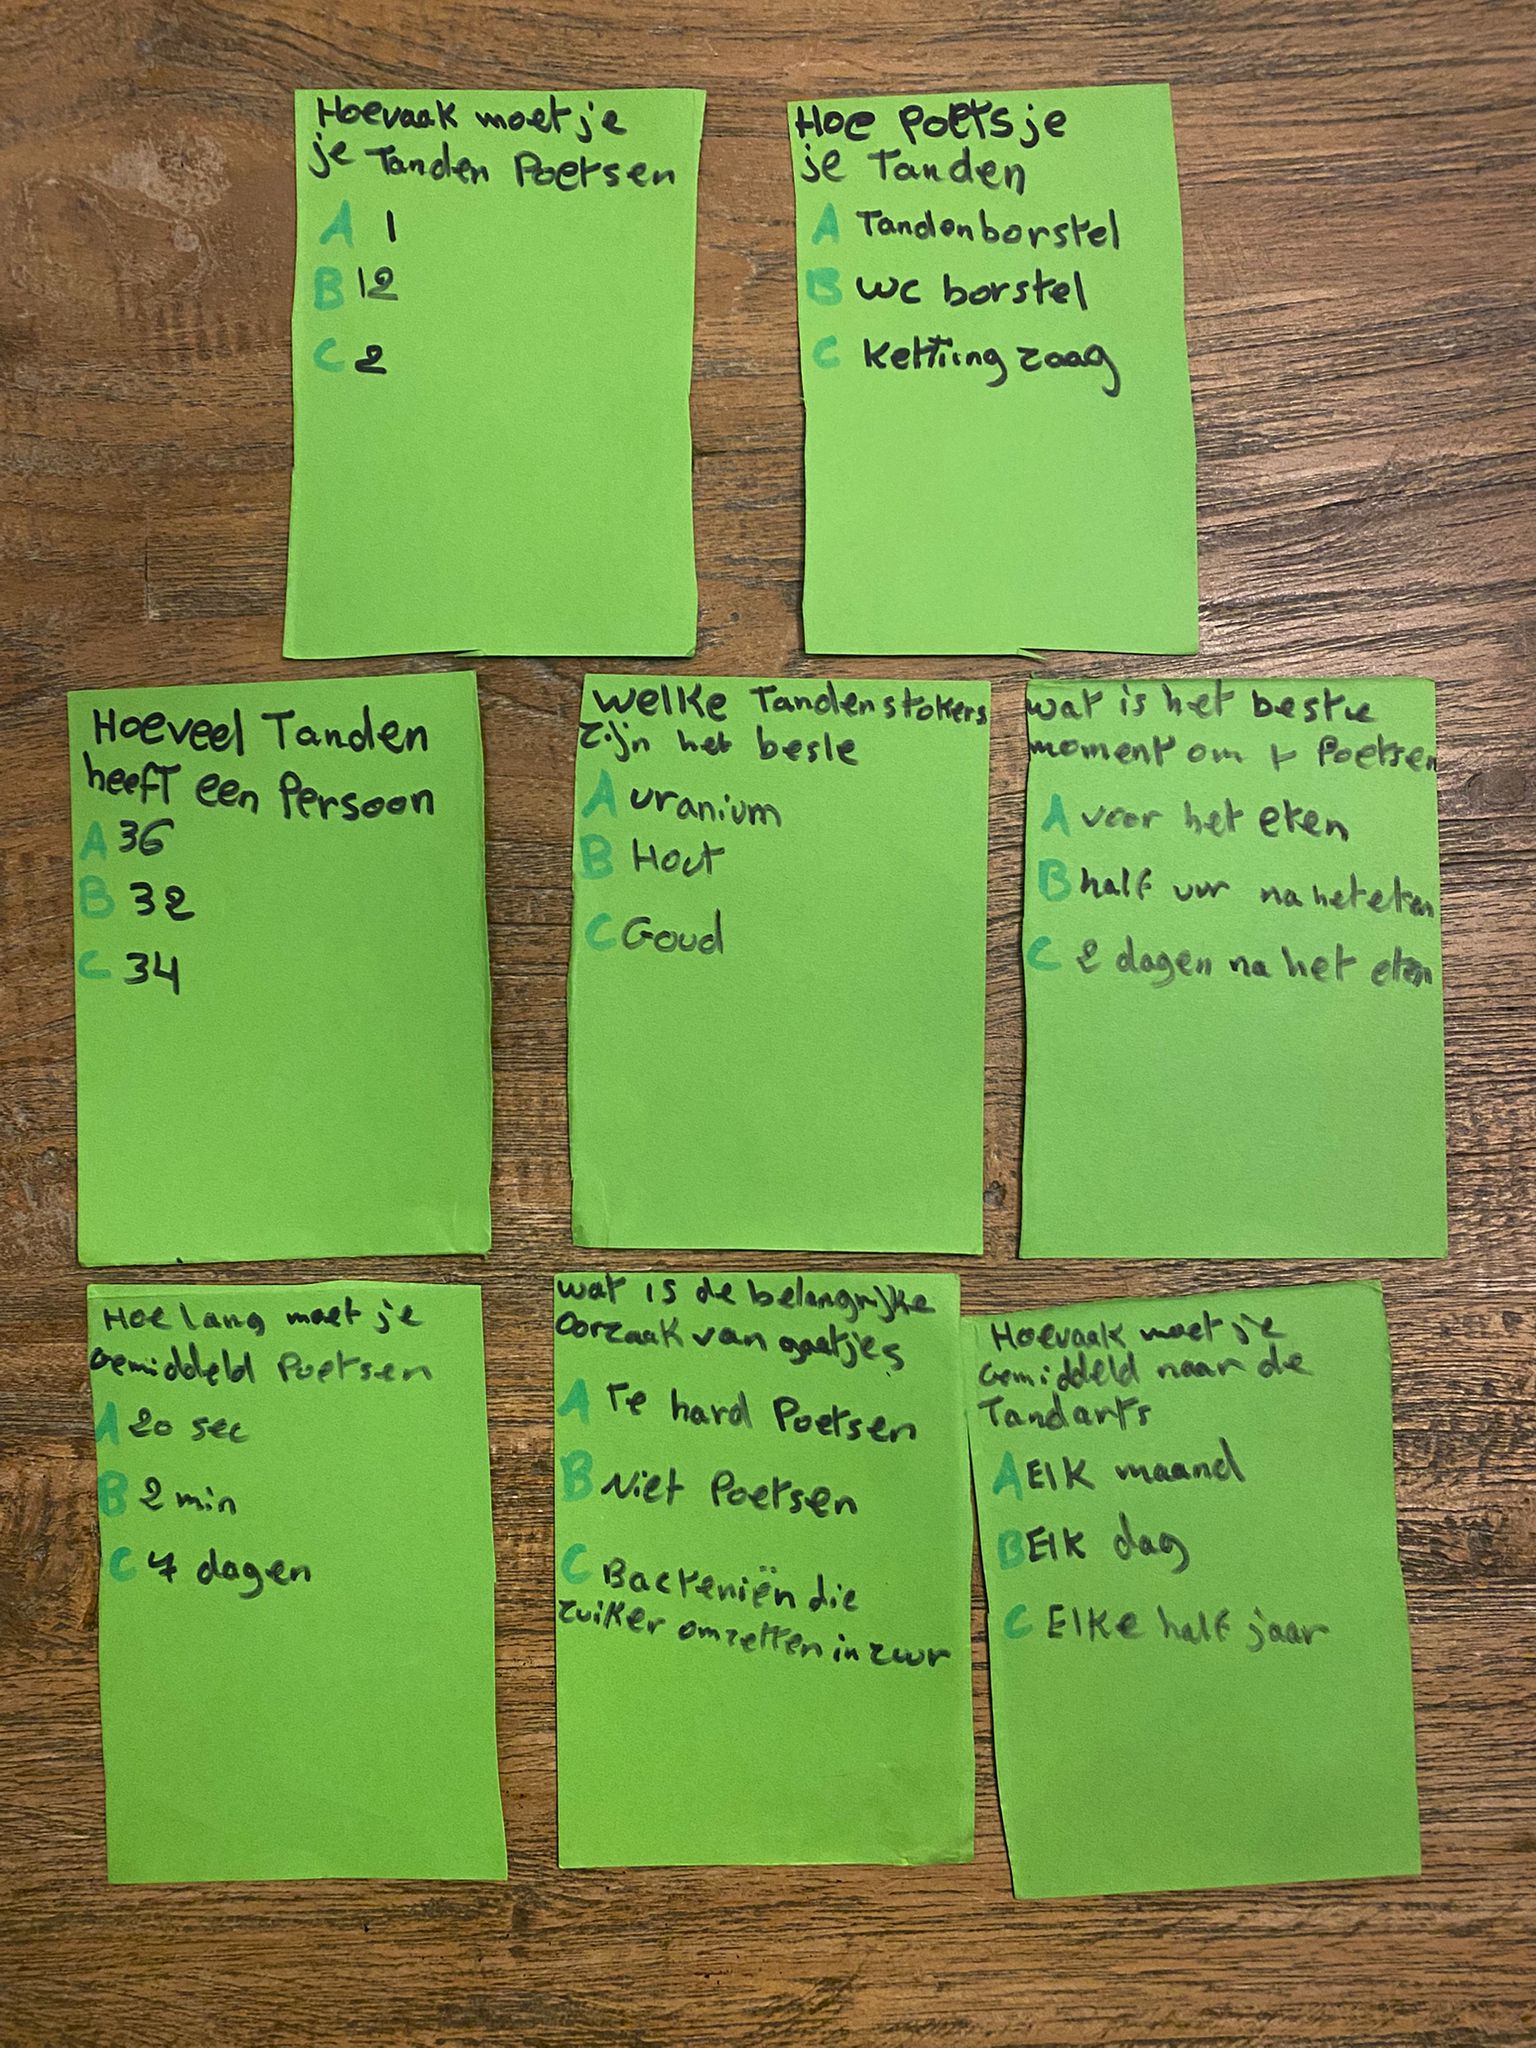 Hoevaak moet je
je Tanden Poetsen
A 1
B 12
C 2
Hoe poets je
je Tanden
A Tandenborstel
B wc borstel
C Kettiing zaag
Hoeveel Tanden
heeft een Persoon
A 36
B 32
C 34
welke Tandenstokers
zijn het beste
A uranium
B Hout
C Goud
wat is het beste
moment om t Poetsen
A voor het eten
B half uur na het eten
C 2 dagen na het eten
Hoe lang moet je
Gemiddeld Poetsen
A 20 sec
B 2 min
C 7 dagen
wat is de belangrijke
Oorzaak van gaatjes
A Te hard Poetsen
B Niet Poetsen
C Bacteniën die
zuiker omzetten in zuur
Hoevaak moet je
Gemiddeld naar de
Tandarts
A Elk maand
B Elk dag
C Elke half jaar